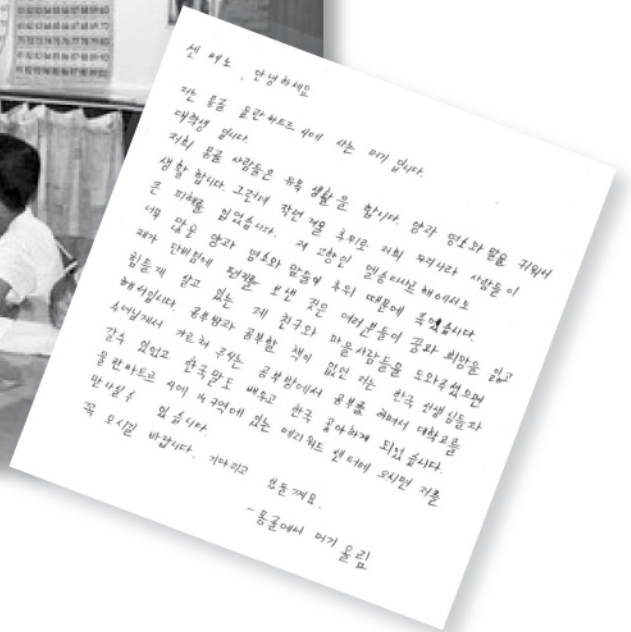 센 베노, 안녕하세요
저는 몽골 울란바트르 4에 사는 머기 입니다.
대학생 입니다.
저희 몽골 사람들은 유목 생활을 합니다. 양과 염소와 말을 키워서
생활 합니다. 그런데 작년 겨울 추위로 저희 우리나라 사람들이
큰 피해를 입었습니다. 제 고향인 엘승타사르해에서도
너무 많은 양과 염소와 말들이 추위 때문에 죽었습니다.
제가 단비님에 편지를 보낸 것은 여러분들이 꿈과 희망을 잃고
힘들게 살고 있는 제 친구와 마을사람들을 도와주셨으면
해서입니다. 공부방과 공부할 책이 없던 저는 한국 선생님들과
수녀님께서 가르쳐 주시는 공부방에서 공부를 하며서 대학교를
갈수 있었고 한국말도 배우고 한국 좋아하게 되었습니다.
울란바트르 4에 14구역에 있는 메리워드 센터에 오시면 저를
만나실 수 있습니다.
꼭 오시길 바랍니다. 기다리고
있을게요.
- 몽골에서 머기 올림